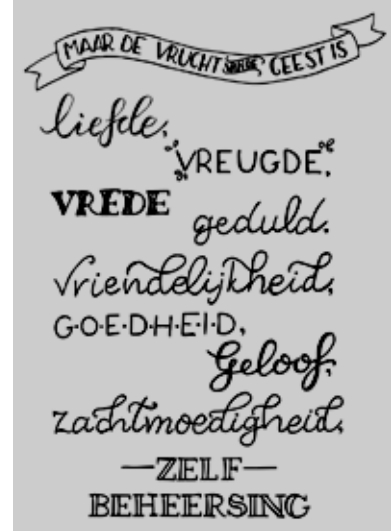 MAAR DE VRUCHT GEEST IS
liefde,
VREUGDE,
VREDE
geduld,
vriendelijkheid,
G·O·E·D·H·E·I·D,
Geloof,
zachtmoedigheid,
—ZELF—
BEHEERSING